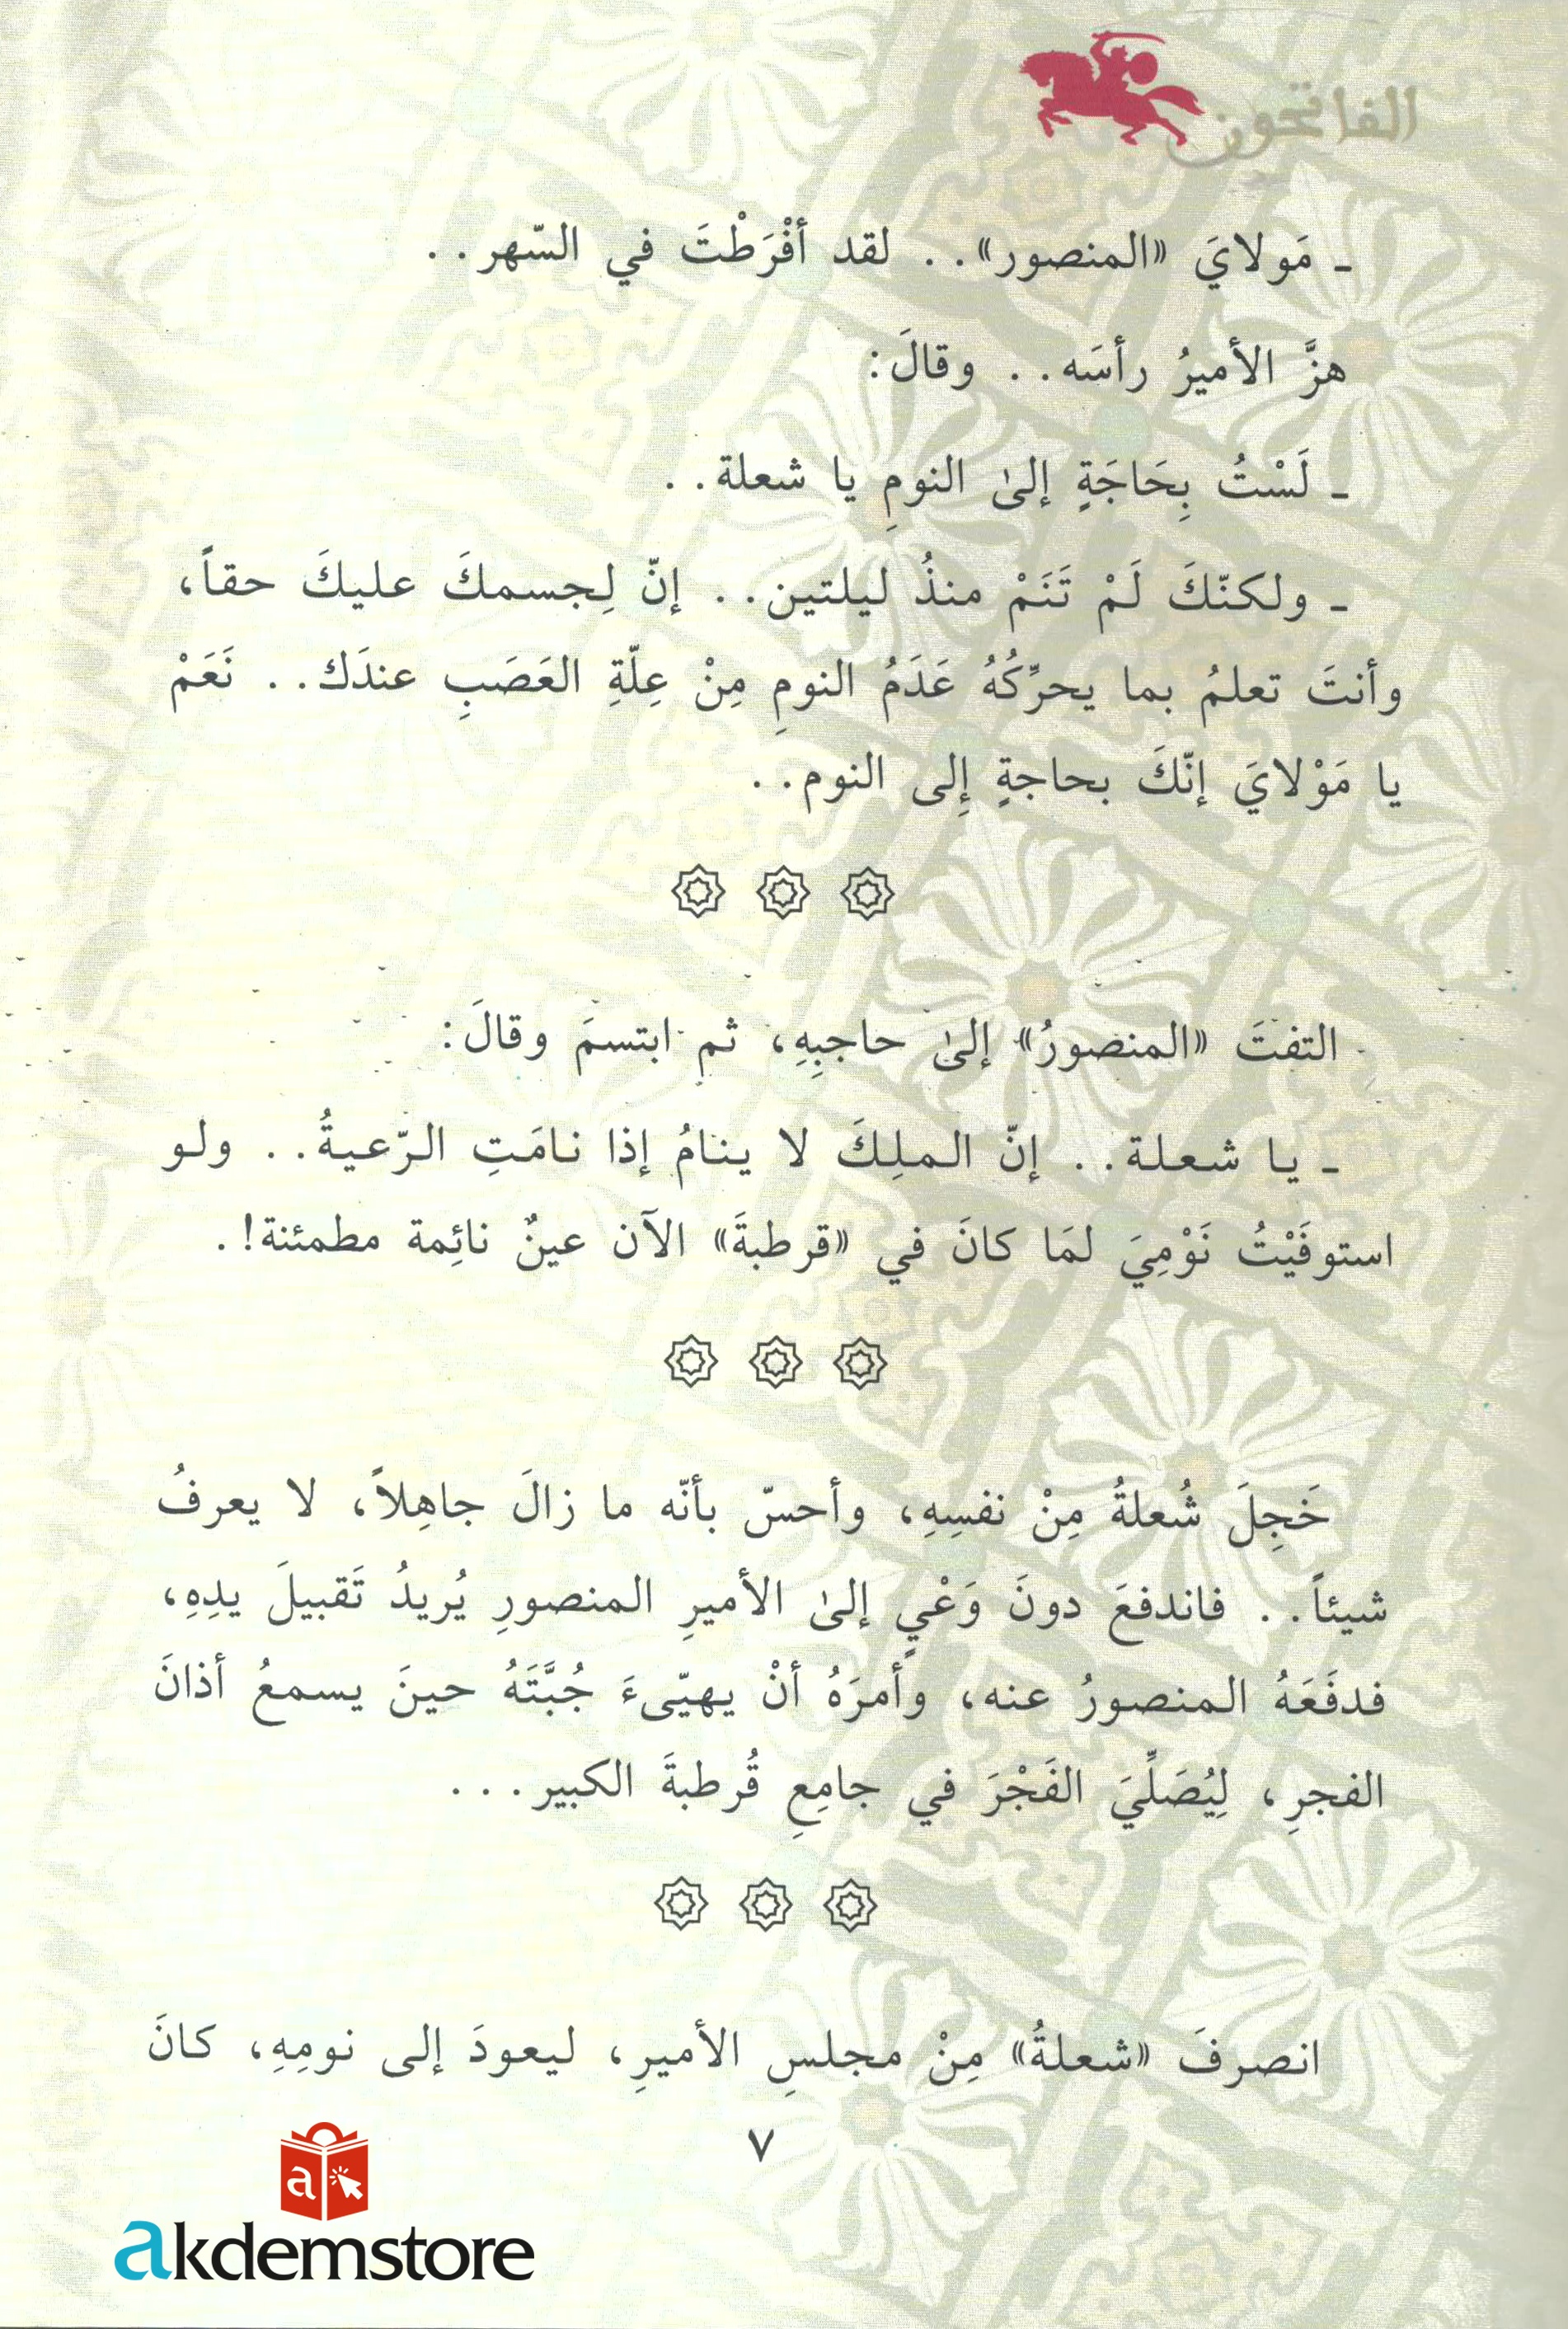 الفاتحون
ـ مَولايَ «المنصور».. لقد أفْرَطْتَ في السّهر..
هزَّ الأميرُ رأسَه.. وقالَ:
ـ لَسْتُ بِحَاجَةٍ إلىٰ النومِ يا شعلة..
ـ ولكنّكَ لَمْ تَنَمْ منذُ ليلتين.. إنّ لِجسمكَ عليكَ حقاً،
وأنتَ تعلمُ بما يحرِّكُهُ عَدَمُ النومِ مِنْ عِلّةِ العَصَبِ عندَك.. نَعَمْ
يا مَوْلايَ إنّكَ بحاجةٍ إِلى النوم..
التفتَ «المنصورُ» إلىٰ حاجبِهِ، ثم ابتسمَ وقالَ:
ـ يا شعلة.. إنّ الملِكَ لا ينامُ إذا نامَتِ الرّعيةُ.. ولو
استوفَيْتُ نَوْمِيَ لمَا كانَ في «قرطبةَ» الآن عينٌ نائِمة مطمئنة!.
خَجِلَ شُعلةُ مِنْ نفسِهِ، وأحسّ بأنّه ما زالَ جاهِلاً، لا يعرفُ
شيئاً.. فاندفعَ دونَ وَعْيٍ إلىٰ الأميرِ المنصورِ يُريدُ تَقبيلَ يدِهِ،
فدفَعَهُ المنصورُ عنه، وأمرَهُ أنْ يهيّىءَ جُبَّتَهُ حينَ يسمعُ أذانَ
الفجرِ، لِيُصَلِّيَ الفَجْرَ في جامِعِ قُرطبةَ الكبير...
انصرفَ «شعلةُ» مِنْ مجلسِ الأميرِ، ليعودَ إلى نومِهِ، كانَ
٧
a
akdemstore